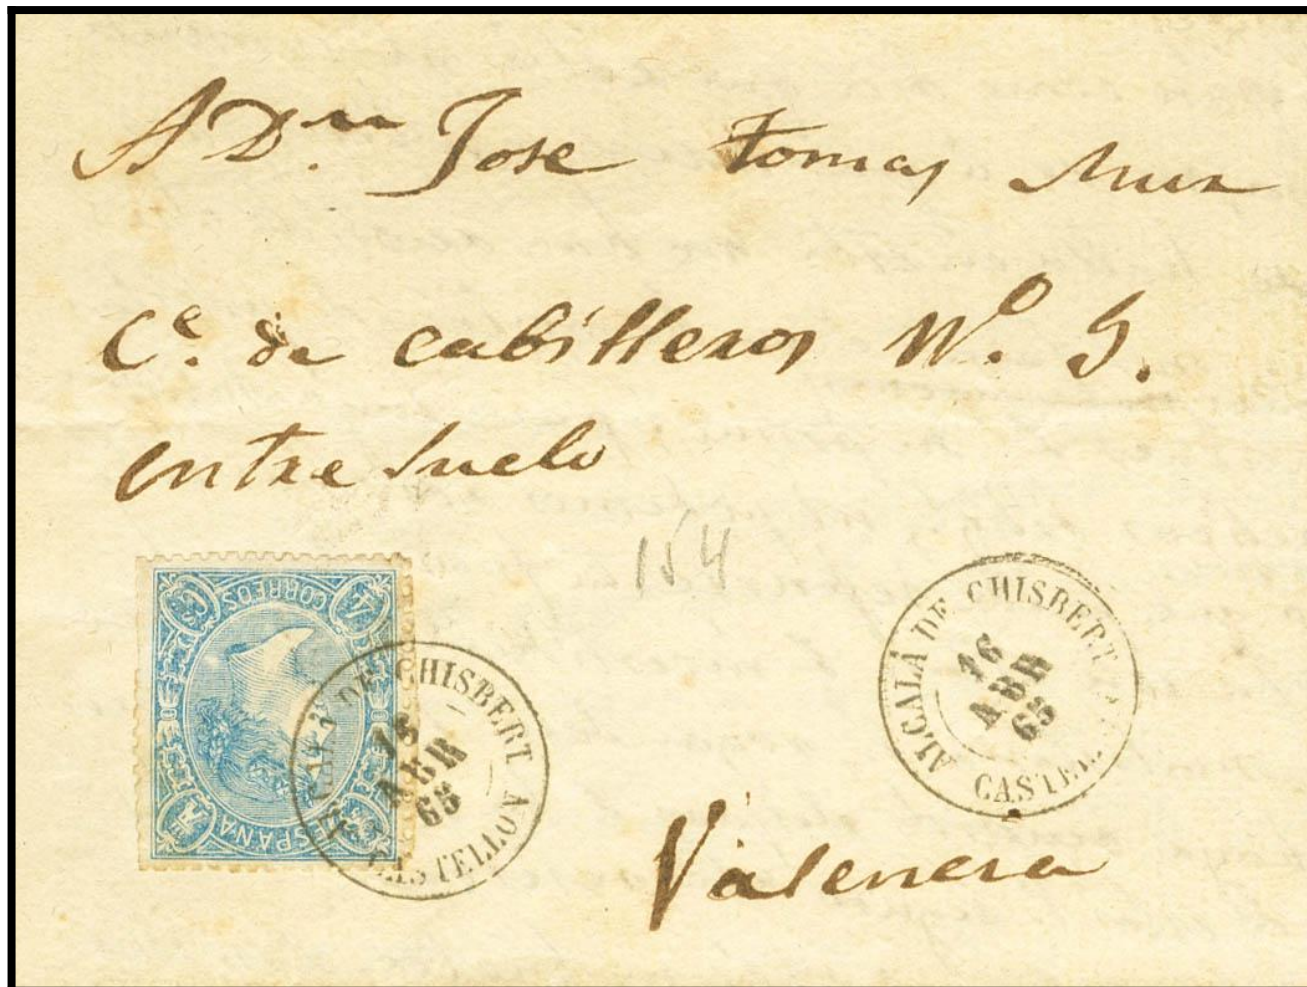 A Dⁿ. Jose tomas Mur
Cᵉ. de cabilleros Nº. 5.
entre suelo
154
CORREOS
4 Cs
ESPAÑA
DE CHISBERT
16
ABR
65
CASTELLON
ALCALÁ DE CHISBERT
16
ABR
65
CASTEL
Valencia